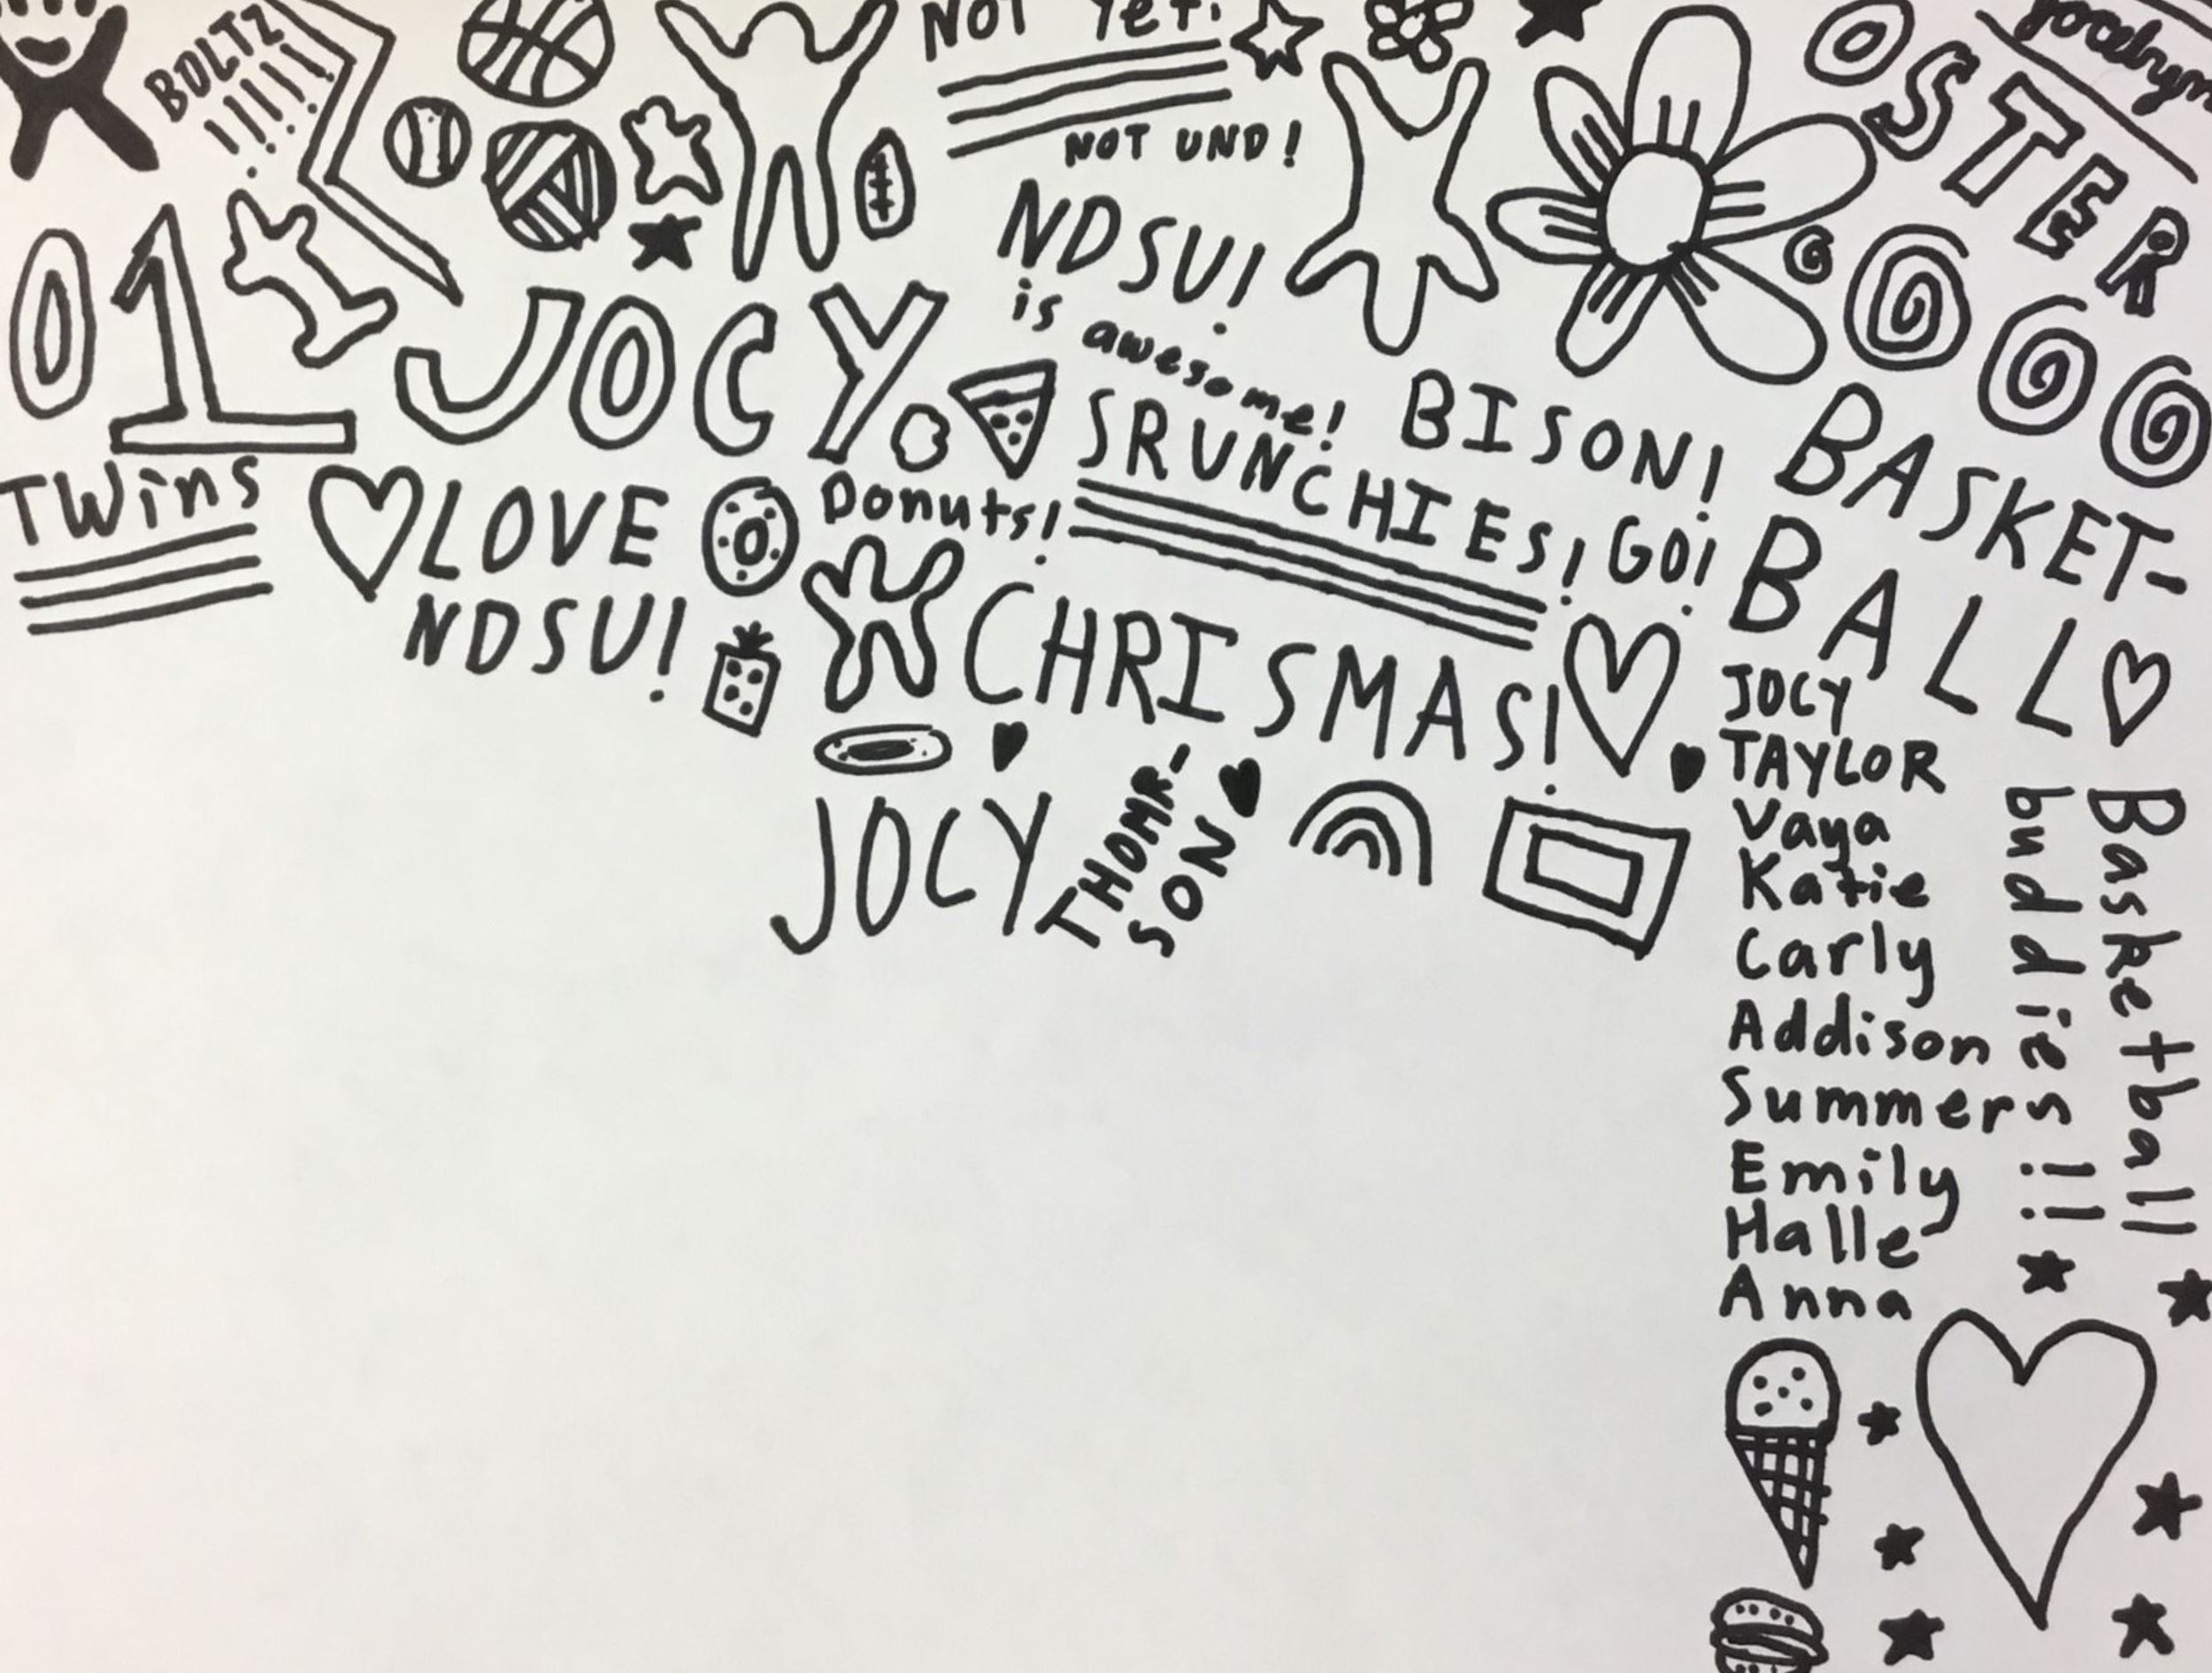 NOT Yet!
Jocelyn
BOLTZ
!!!!!
OSTER
NOT UND!
NDSU!
is awesome!
01
JOCY
BISON!
GO!
BASKET-
BALL
SRUNCHIES!
TWins
LOVE
NDSU!
Donuts!
CHRISMAS!
JOCY
THOMR-
SON
JOCY
TAYLOR
Vaya
Katie
Carly
Addison
Summer
Emily
Halle
Anna
Basketball
buddies!!